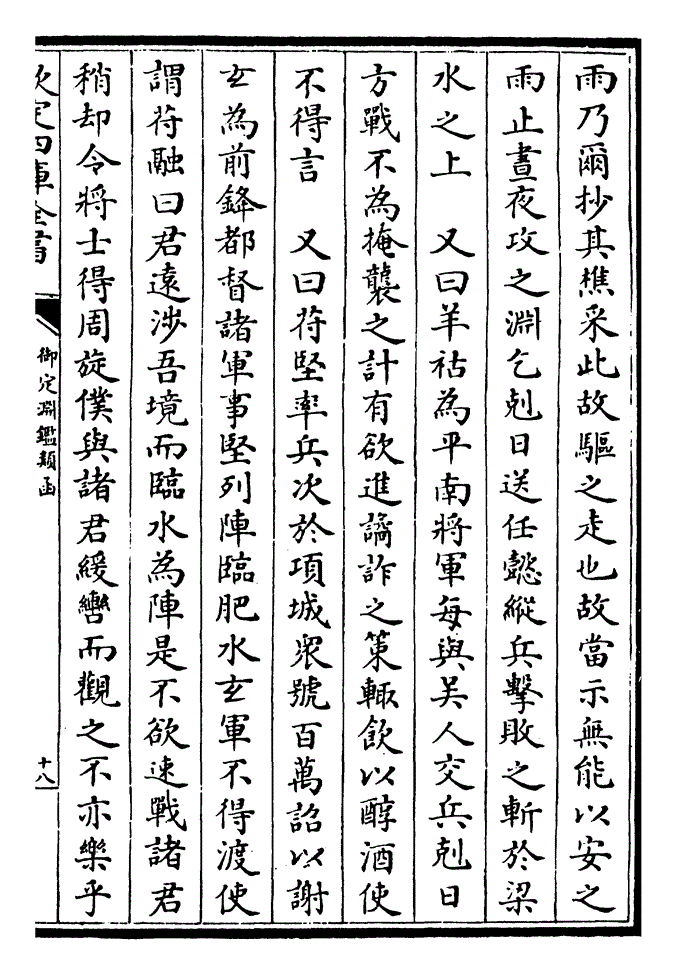 雨乃爾抄其樵采此故驅之走也故當示無能以安之
雨止晝夜攻之淵乞剋日送任懿縱兵擊敗之斬於梁
水之上　又曰羊祜為平南將軍每與吳人交兵剋日
方戰不為掩襲之計有欲進譎詐之策輙飲以醇酒使
不得言　又曰苻堅率兵次於項城衆號百萬詔以謝
玄為前鋒都督諸軍事堅列陣臨肥水玄軍不得渡使
謂苻融曰君遠涉吾境而臨水為陣是不欲速戰諸君
稍却令將士得周旋僕與諸君緩轡而觀之不亦樂乎
欽定四庫全書
御定淵鑑類函
十八